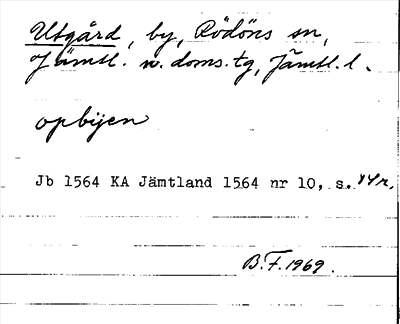 Utgård, by, Rödöns sn,
Jämtl. n. doms. tg, Jämtl. l.
opbijen
Jb 1564 KA Jämtland 1564 nr 10, s. 44r,
B.F. 1969.